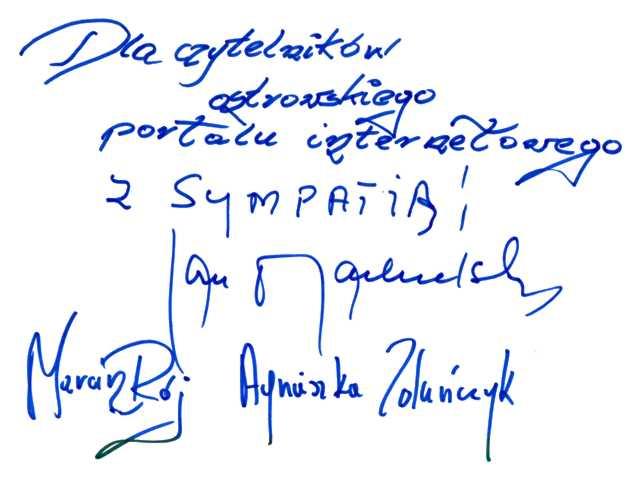 Dla czytelników
ostrowskiego
portalu internetowego
z SYMPATIĄ!
Jan Machulski
Marcin Rój Agnieszka